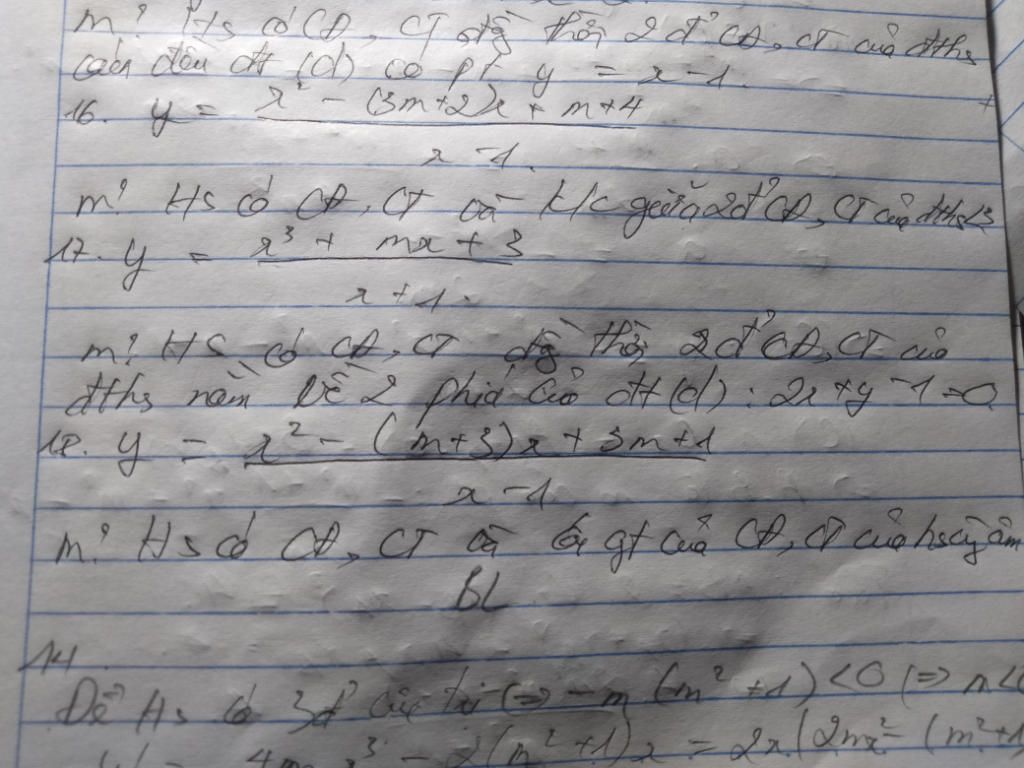 m? Hs có CĐ, CT đồng thời 2 đ' CĐ, CT của đths
cách đều đt (d) có pt y = x - 1.
16. y = (x² - (3m+2)x + m+4) / (x - 1).
m? Hs có CĐ, CT và k/c giữa 2 đ' CĐ, CT của đths <3
17. y = (x³ + mx + 3) / (x + 1).
m? Hs có CĐ, CT đồng thời 2 đ' CĐ, CT của
đths nằm về 2 phía của đt (d) : 2x + y - 1 = 0
18. y = (x² - (m+3)x + 3m+1) / (x - 1)
m? Hs có CĐ, CT và các gt của CĐ, CT của hs cùng âm
BL
14.
Để Hs có 3đ' cực trị (=) -m (m² + 1) < 0 (=) m <0
x³ - 2(m² + 1)x = 2x(2mx² - (m²+1